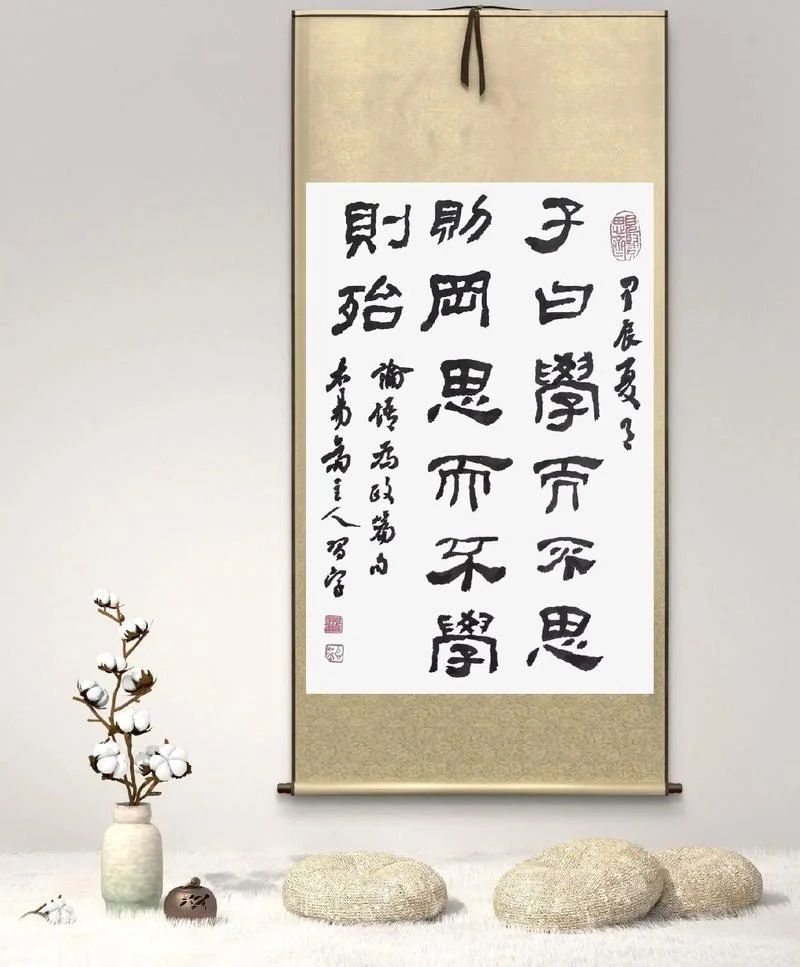 甲辰夏月
子曰學而不思
則罔思而不學
則殆
論語為政篇句
木易齋主人習字